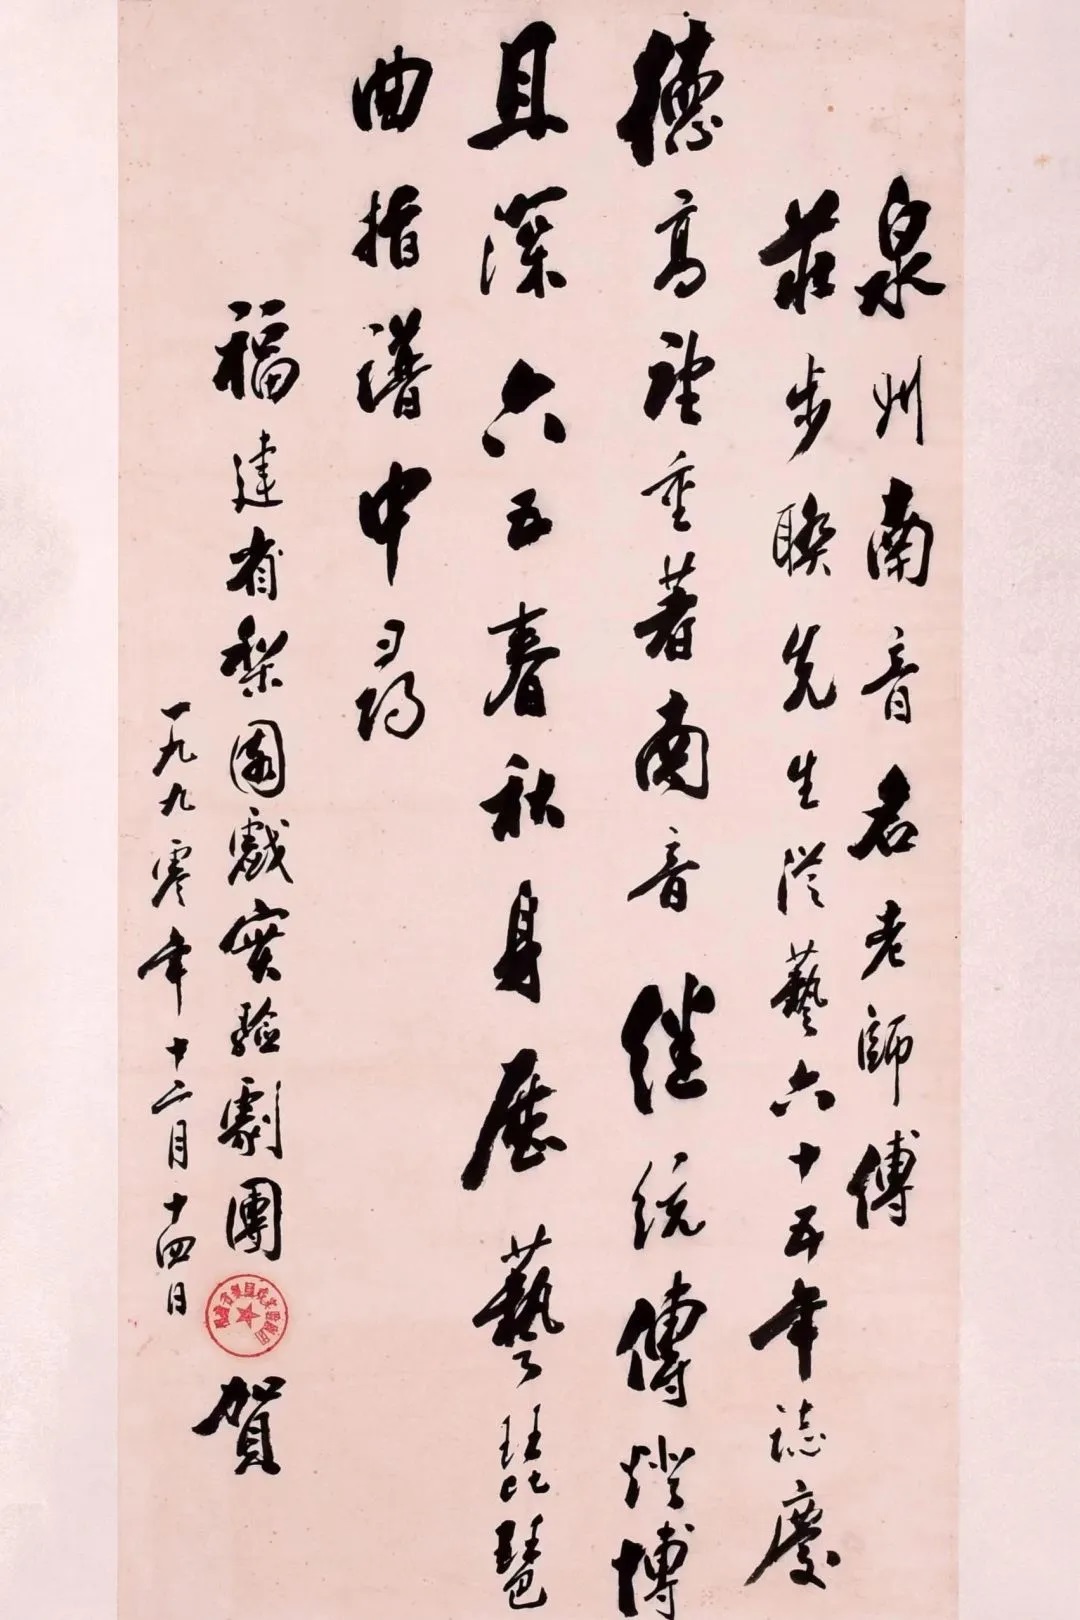 泉州南音名老師傅
莊步聯先生從藝六十五年誌慶
德高望重著南音繼統傳燈博
且深六五春秋身歷藝琵琶
曲指譜中尋
福建省梨園戲實驗劇團賀
一九九零年十二月十四日